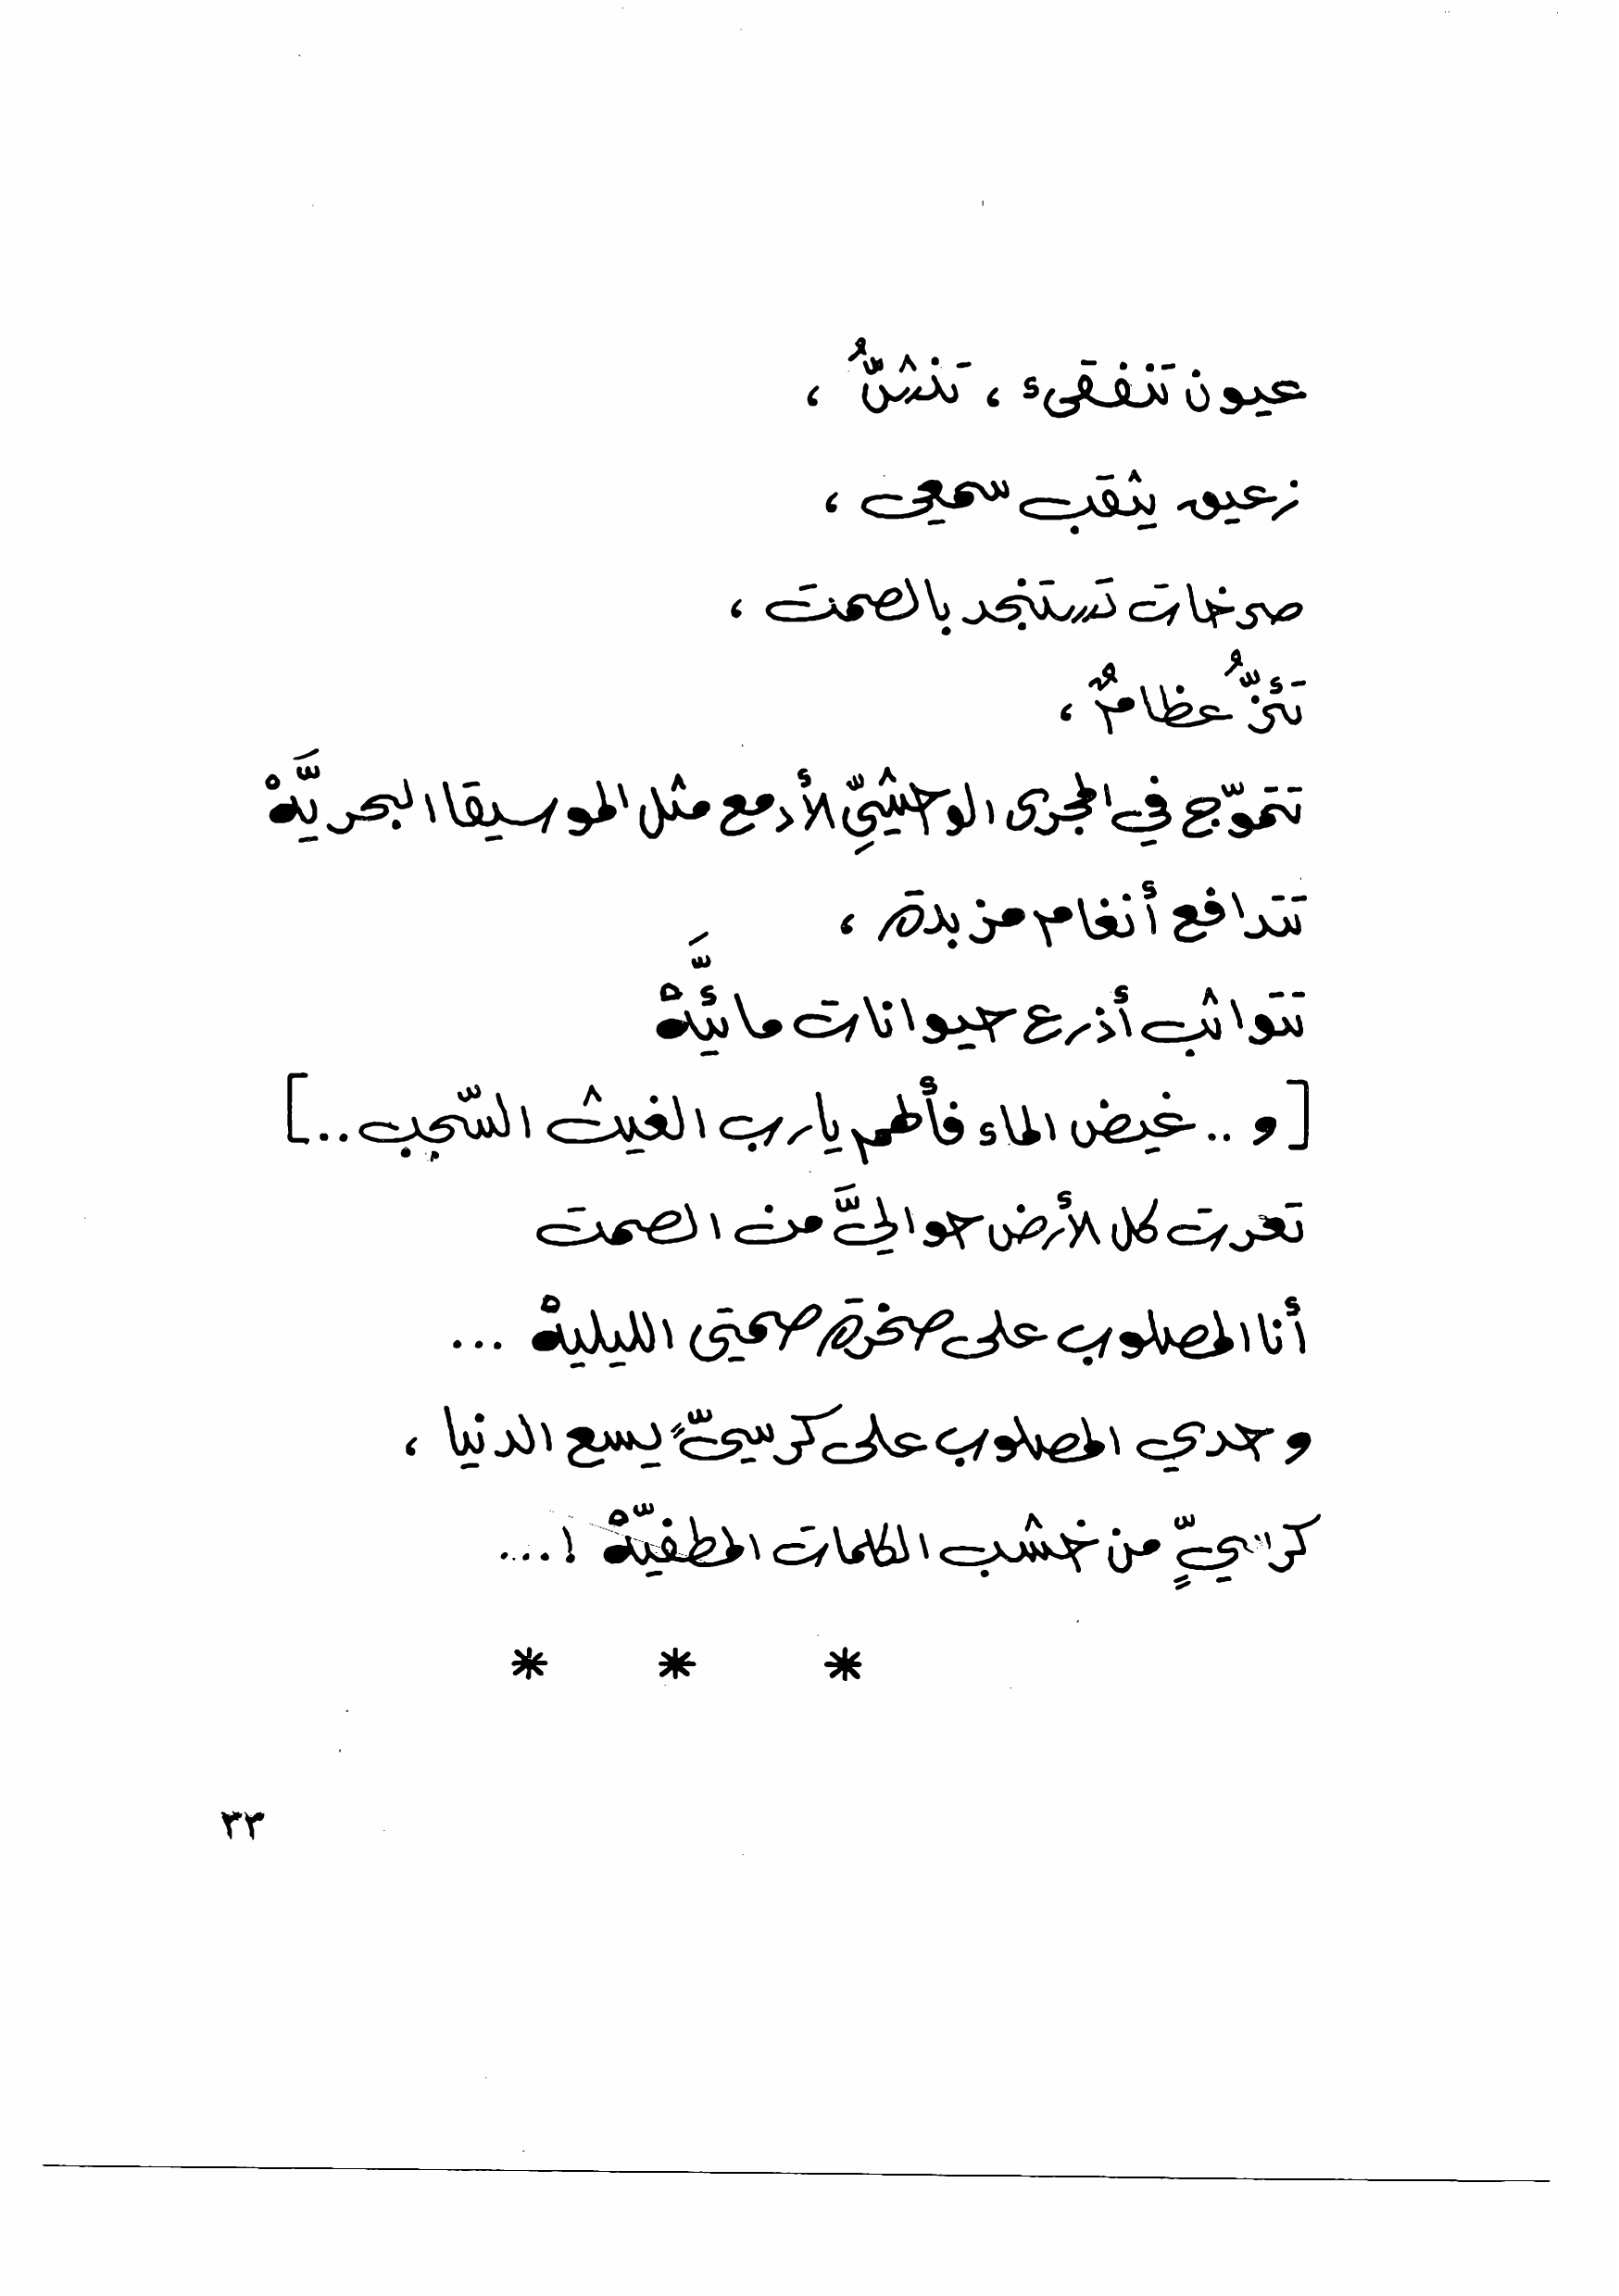 عيون تتفقىء ، تنشُّ ،
زعيق يثقب سمعي ،
صرخات تستنجد بالصمت ،
تئزُّ عظامٌ ،
تتموّج في المجرى الوحشيِّ لأدمع مثل الموسيقا البحريَّةْ
تتدافع أنغام مزبدة ،
تتواثب أذرع حيوانات مائيَّةْ
[ و .. غيض الماء فألهم يارب الغيث السّحب .. ]
تعرت كل الأرض حواليَّ من الصمت
أنا المصلوب على صخرة صمتي الليليةْ ...
وحدي المصلوب على كرسيًّ يسع الدنيا ،
كرسيٍّ من خشب الكلمات المطفيّةْ ! ...
* * *
٣٣